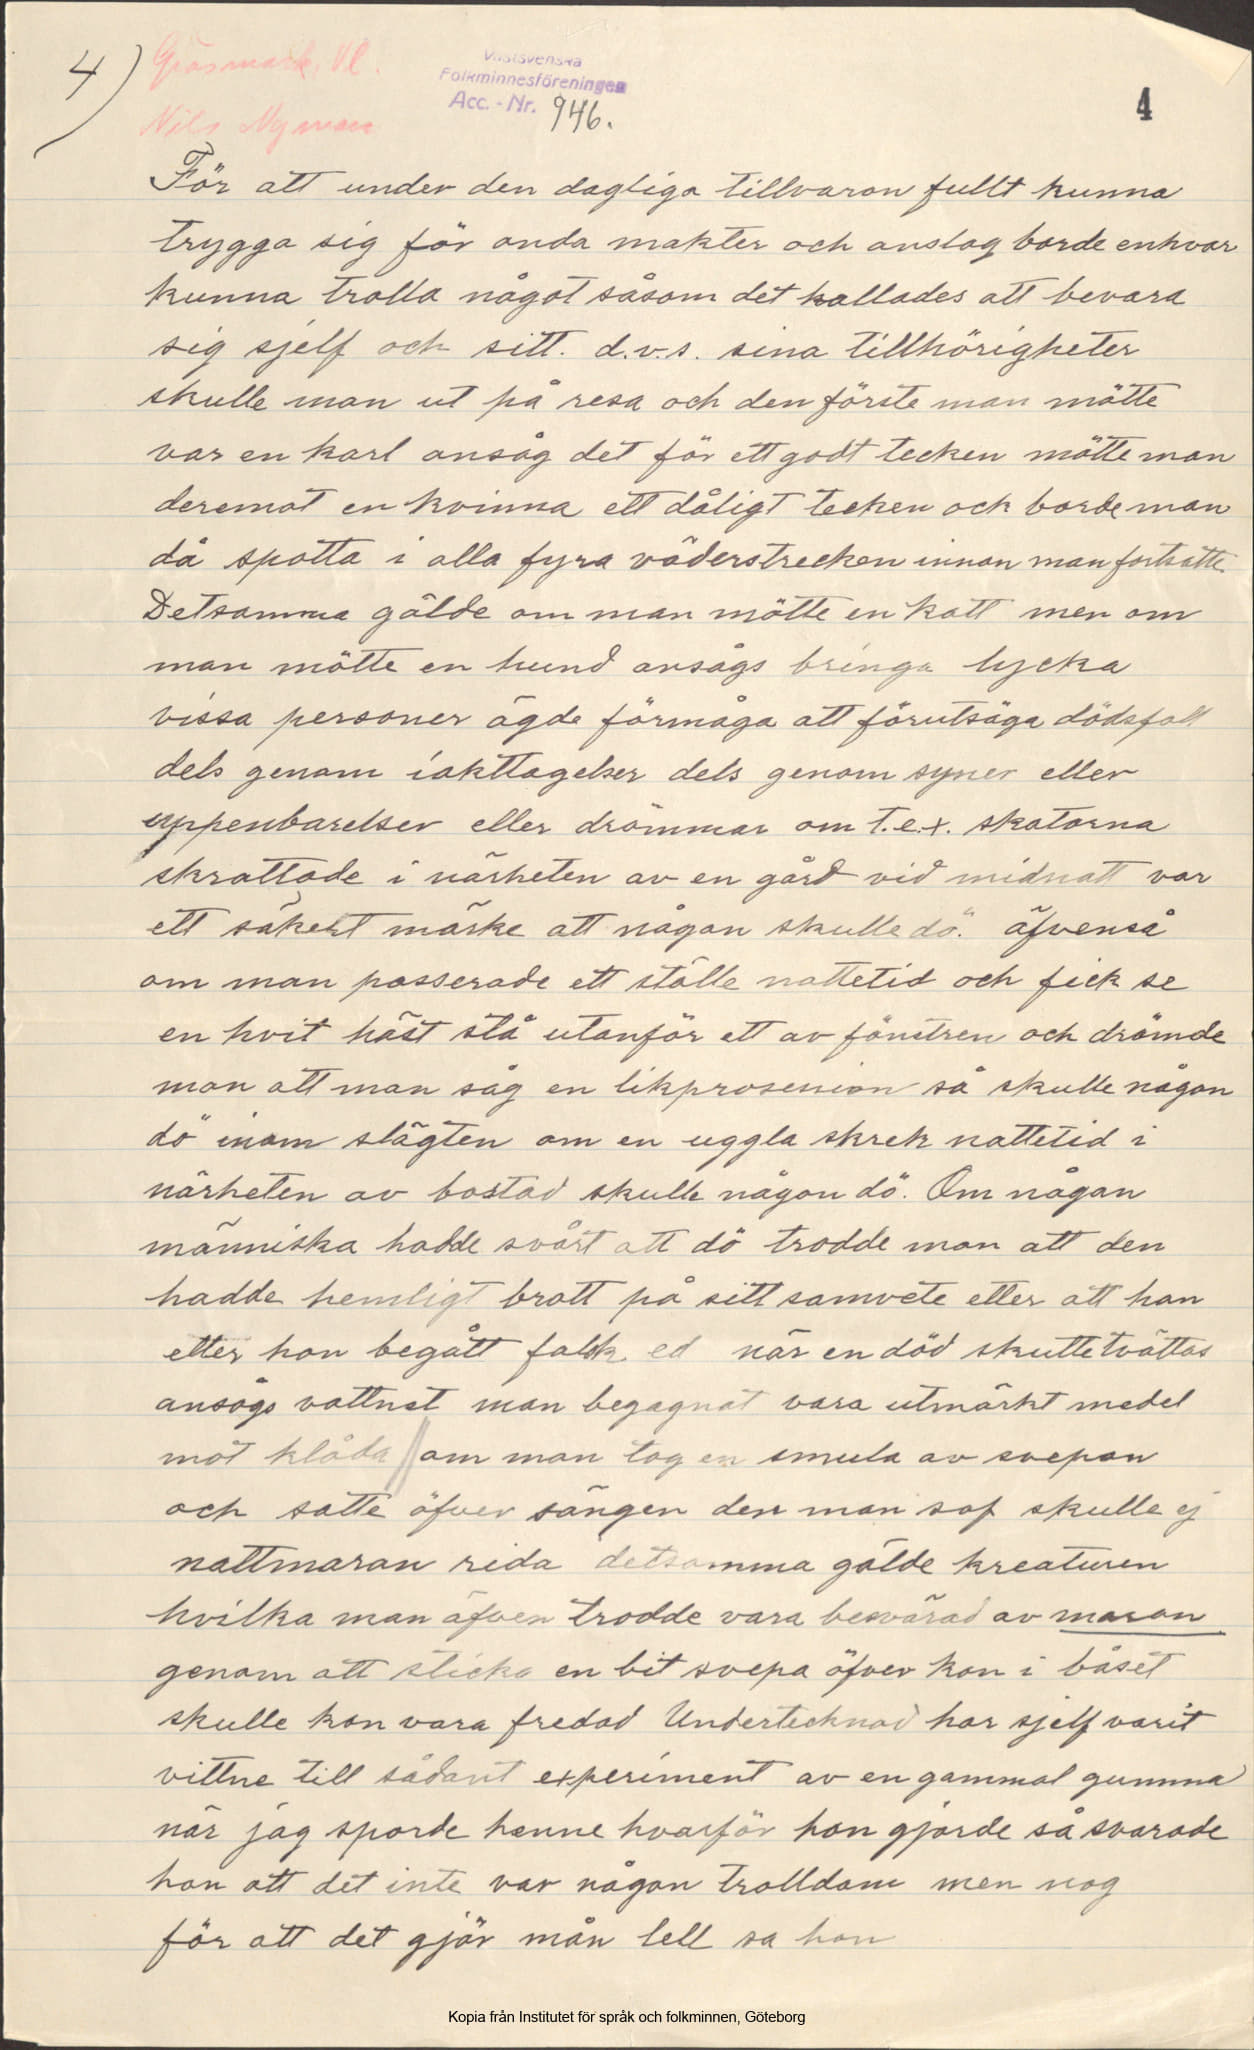 4)
Gräsmark, Vl.
Nils Nyman
Västsvenska
Folkminnesföreningen
Acc.-Nr. 946.
4
För att under den dagliga tillvaron fullt kunna
trygga sig för onda makter och anslag borde enhvar
kunna trolla något såsom det kallades att bevara
sig sjelf och sitt. d.v.s. sina tillhörigheter
skulle man ut på resa och den förste man mötte
var en karl ansåg det för ett godt tecken mötte man
deremot en kvinna ett dåligt tecken och borde man
då spotta i alla fyra väderstrecken innan man fortsatte
Detsamma gälde om man mötte en katt men om
man mötte en hund ansågs bringa lycka
vissa personer ägde förmåga att förutsäga dödsfall
dels genom iakttagelser dels genom syner eller
uppenbarelser eller drömmar om t.e.x. skatorna
skrattade i närheten av en gård vid midnatt var
ett säkert märke att någon skulle dö. äfvenså
om man passerade ett ställe nattetid och fick se
en hvit häst stå utanför ett av fönstren och drömde
man att man såg en likprosession så skulle någon
dö inom slägten om en uggla skrek nattetid i
närheten av bostad skulle någon dö. Om någon
människa hadde svårt att dö trodde man att den
hadde hemligt brott på sitt samvete eller att han
eller hon begått falsk ed när en död skulle tvättas
ansågs vattnet man begagnat vara utmärkt medel
mot klåda // om man tog en smula av svepan
och satte öfver sängen der man sof skulle ej
nattmaran rida detsamma gälde kreaturen
hvilka man äfven trodde vara besvärad av maran
genom att sticka en bit svepa öfver kon i båset
skulle kon vara fredad Undertecknad har sjelf varit
vittne till sådant experiment av en gammal gumma
när jag sporde henne hvarför hon gjorde så svarade
hon att det inte var någon trolldom men nog
för att det gjör mån lell sa hon
Kopia från Institutet för språk och folkminnen, Göteborg